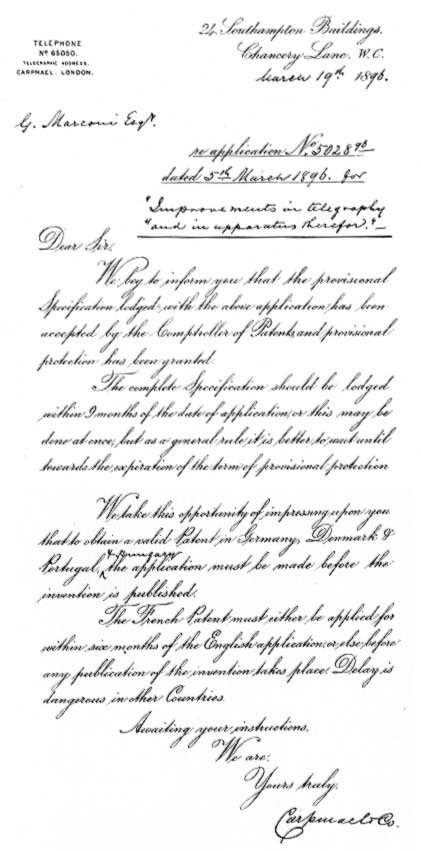 TELEPHONE
Nº 65050.
TELEGRAPHIC ADDRESS.
CARPMAEL. LONDON.
24, Southampton Buildings.
Chancery Lane. W.C.
March 19th 1896.
G. Marconi Esqr.
re application No. 5028 96
dated 5th March 1896. for
"Improvements in telegraphy
"and in apparatus therefor."
Dear Sir,
We beg to inform you that the provisional
Specification lodged with the above application has been
accepted by the Comptroller of Patents and provisional
protection has been granted.
The complete Specification should be lodged
within 9 months of the date of application, or this may be
done at once, but as a general rule it is better to wait until
towards the expiration of the term of provisional protection
We take this opportunity of impressing upon you
that to obtain a valid Patent in Germany, Denmark &
Portugal, & Hungary the application must be made before the
invention is published.
The French Patent must either be applied for
within six months of the English application, or else before
any publication of the invention takes place. Delay is
dangerous in other Countries.
Awaiting your instructions,
We are,
Yours truly.
Carpmael & Co.